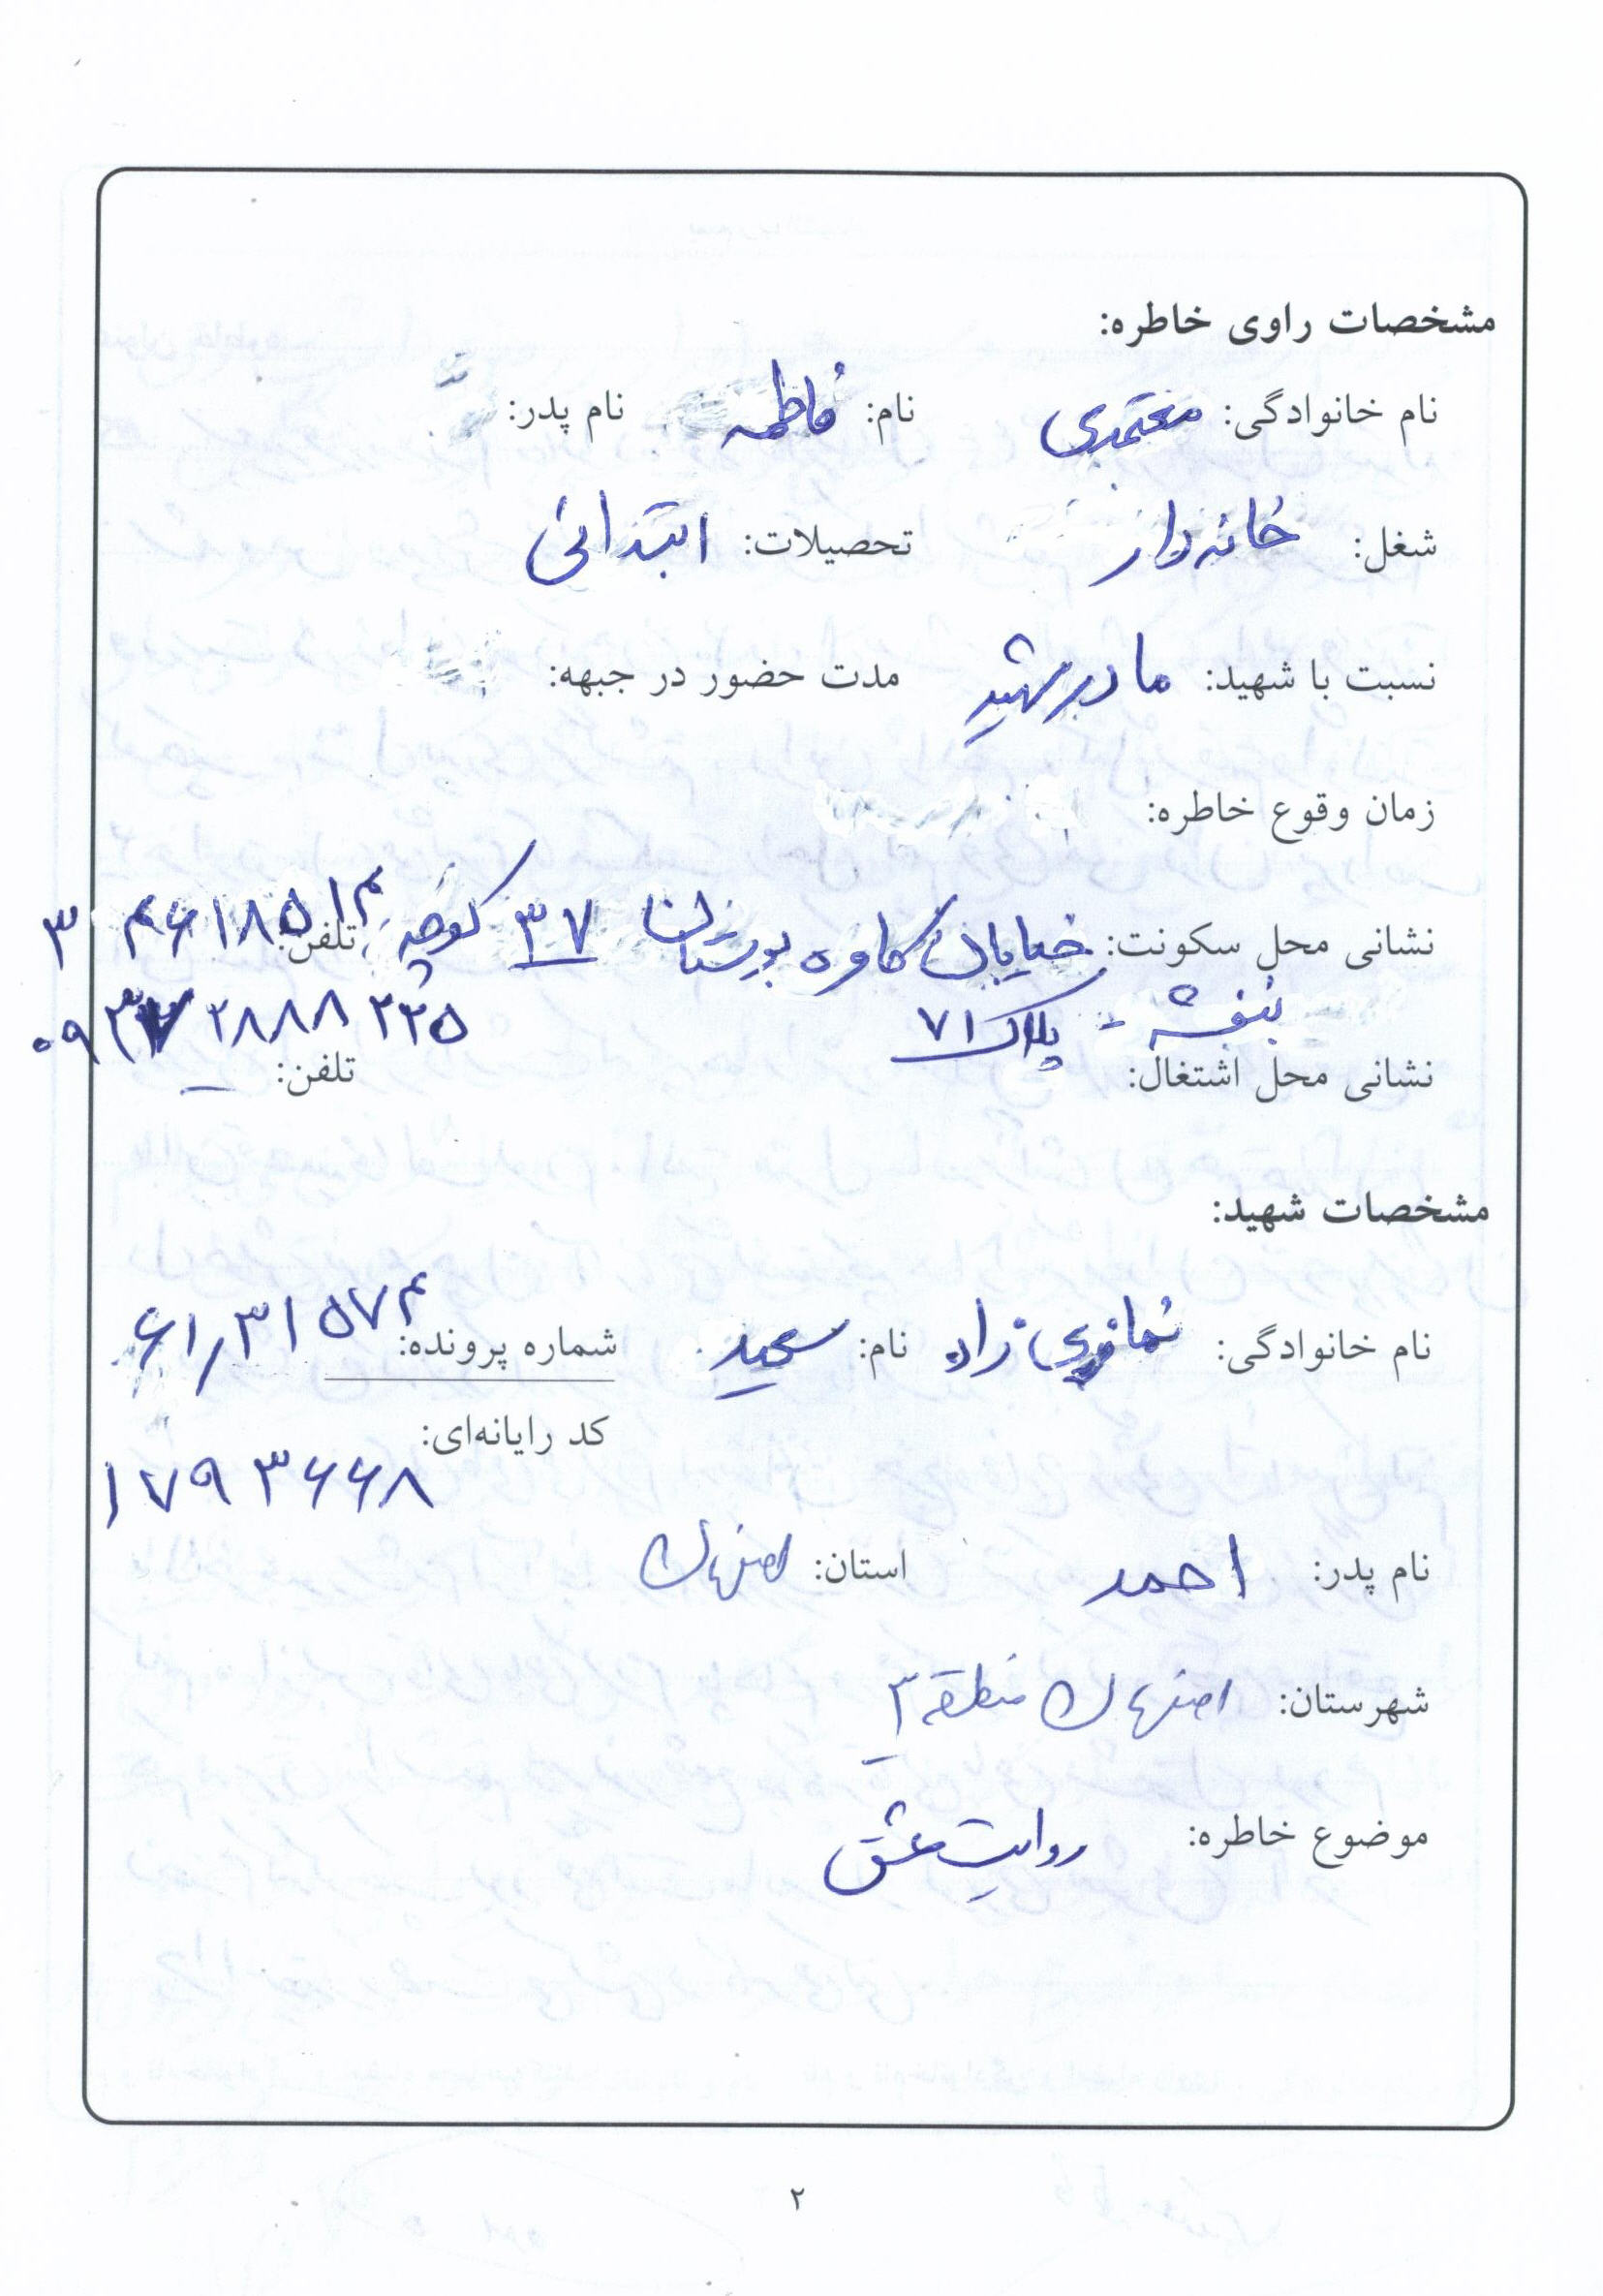 مشخصات راوی خاطره:
نام خانوادگی: معتمدی نام: فاطمه نام پدر:
شغل: خانه‌دار تحصیلات: ابتدائی
نسبت با شهید: مادر شهید مدت حضور در جبهه:
زمان وقوع خاطره:
نشانی محل سکونت: خیابان کاوه بورستان ۳۷ کوچه تلفن:
بنفشه - پلاک ۷۱
نشانی محل اشتغال: تلفن: –
مشخصات شهید:
نام خانوادگی: نمازی زاد نام: سعید شماره پرونده: ۶۱٫۳۱۵۷۴
کد رایانه‌ای:
۱۷۹۳۶۶۸
نام پدر: احمد استان: اصفهان
شهرستان: اصفهان منطقه ۳
موضوع خاطره: روایت عشق
۲